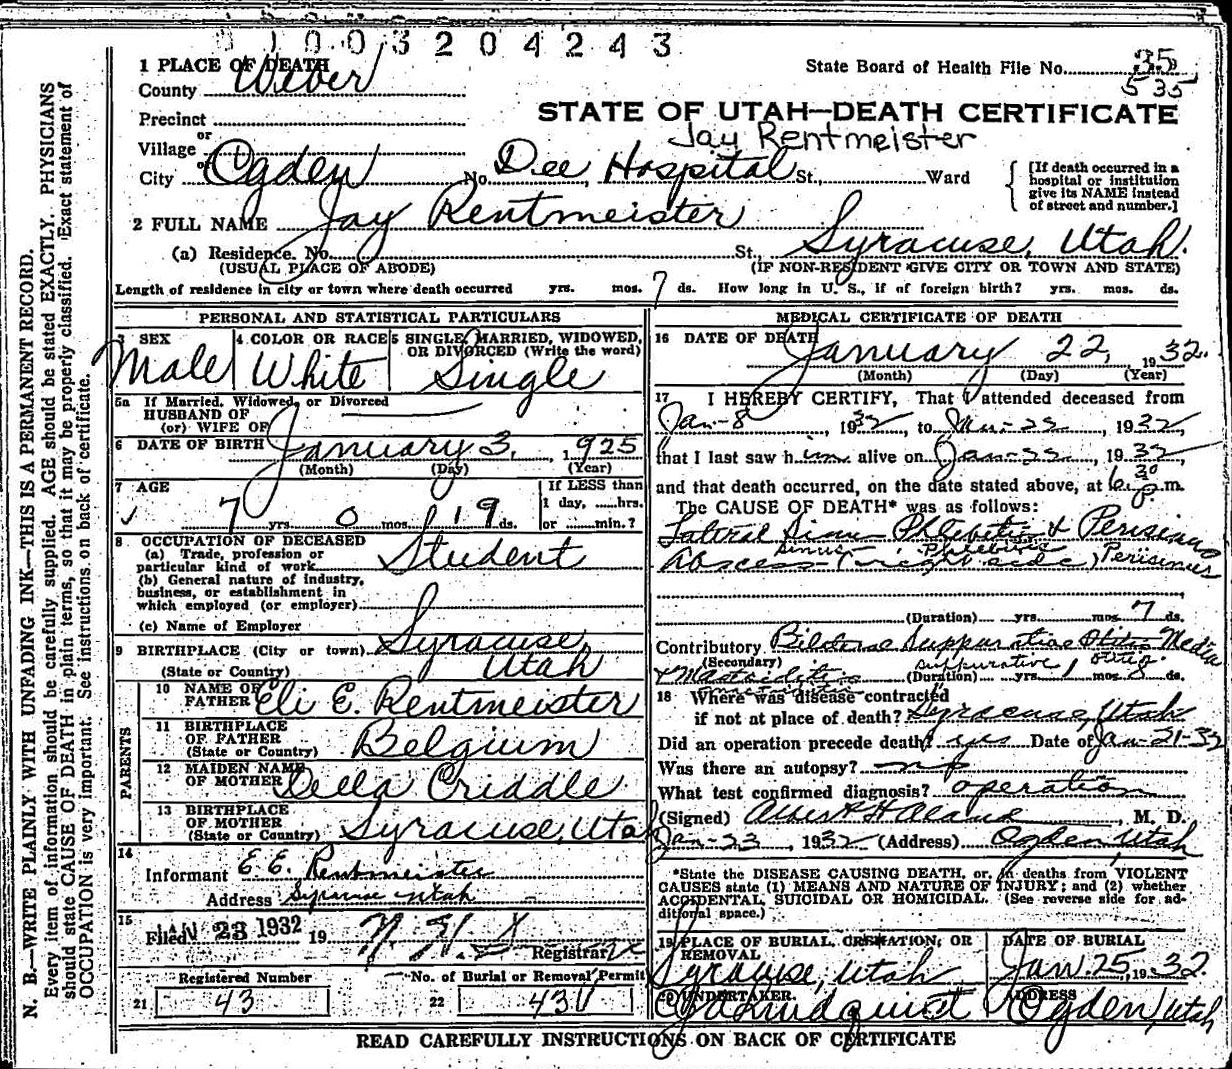 0 1 0 0 3 2 0 4 2 4 3
1 PLACE OF DEATH
County Weber
State Board of Health File No. 35
535
Precinct
STATE OF UTAH—DEATH CERTIFICATE
or
Village
Jay Rentmeister
or
City Ogden No. Dee Hospital St., Ward
[If death occurred in a hospital or institution give its NAME instead of street and number.]
2 FULL NAME Jay Rentmeister
(a) Residence. No. St., Syracuse, Utah.
(USUAL PLACE OF ABODE) (IF NON-RESIDENT GIVE CITY OR TOWN AND STATE)
Length of residence in city or town where death occurred yrs. mos. 7 ds. How long in U. S., if of foreign birth? yrs. mos. ds.
PERSONAL AND STATISTICAL PARTICULARS
3 SEX Male
4 COLOR OR RACE White
5 SINGLE, MARRIED, WIDOWED, OR DIVORCED (Write the word) Single
5a If Married, Widowed, or Divorced
HUSBAND OF
(or) WIFE OF
6 DATE OF BIRTH January 3, 1925
(Month) (Day) (Year)
7 AGE 7 yrs. 0 mos. 19 ds.
If LESS than 1 day, ......hrs. or ......min.?
8 OCCUPATION OF DECEASED
(a) Trade, profession or particular kind of work Student
(b) General nature of industry, business, or establishment in which employed (or employer)
(c) Name of Employer
9 BIRTHPLACE (City or town) Syracuse,
(State or Country) Utah
PARENTS
10 NAME OF FATHER Eli E. Rentmeister
11 BIRTHPLACE OF FATHER (State or Country) Belgium
12 MAIDEN NAME OF MOTHER Della Criddle
13 BIRTHPLACE OF MOTHER (State or Country) Syracuse, Utah
14 Informant E. E. Rentmeister
Address Syracuse Utah
15 Filed JAN 23 1932 19
Registrar
21 Registered Number 43
22 No. of Burial or Removal Permit 431
MEDICAL CERTIFICATE OF DEATH
16 DATE OF DEATH January 22, 1932.
(Month) (Day) (Year)
17 I HEREBY CERTIFY, That I attended deceased from
Jan-8, 1932, to Jan-22, 1932,
that I last saw him alive on Jan-22, 1932,
and that death occurred, on the date stated above, at 6:30 p.m.
The CAUSE OF DEATH* was as follows:
Lateral Sinus Phlebitis & Perisinus
sinus Phlebitis
Abscess (right side) Perisinus
(Duration) yrs. mos. 7 ds.
Contributory Bilateral Suppurative Otitis Media
(Secondary) suppurative otitis
& Mastoiditis (Duration) yrs. 1 mos. 8 ds.
18 Where was disease contracted
if not at place of death? Syracuse, Utah
Did an operation precede death? yes Date of Jan-21-32
Was there an autopsy? no
What test confirmed diagnosis? operation
(Signed) Albert H Aland, M. D.
Jan-23, 1932 (Address) Ogden, Utah
*State the DISEASE CAUSING DEATH, or, in deaths from VIOLENT
CAUSES state (1) MEANS AND NATURE OF INJURY; and (2) whether
ACCIDENTAL, SUICIDAL OR HOMICIDAL. (See reverse side for additional space.)
19 PLACE OF BURIAL, CREMATION, OR REMOVAL Syracuse, Utah
DATE OF BURIAL Jan 25, 1932.
20 UNDERTAKER. Lindquist
ADDRESS Ogden, Utah
READ CAREFULLY INSTRUCTIONS ON BACK OF CERTIFICATE
N. B.—WRITE PLAINLY WITH UNFADING INK—THIS IS A PERMANENT RECORD.
Every item of information should be carefully supplied. AGE should be stated EXACTLY. PHYSICIANS
should state CAUSE OF DEATH in plain terms, so that it may be properly classified. Exact statement of
OCCUPATION is very important. See instructions on back of certificate.